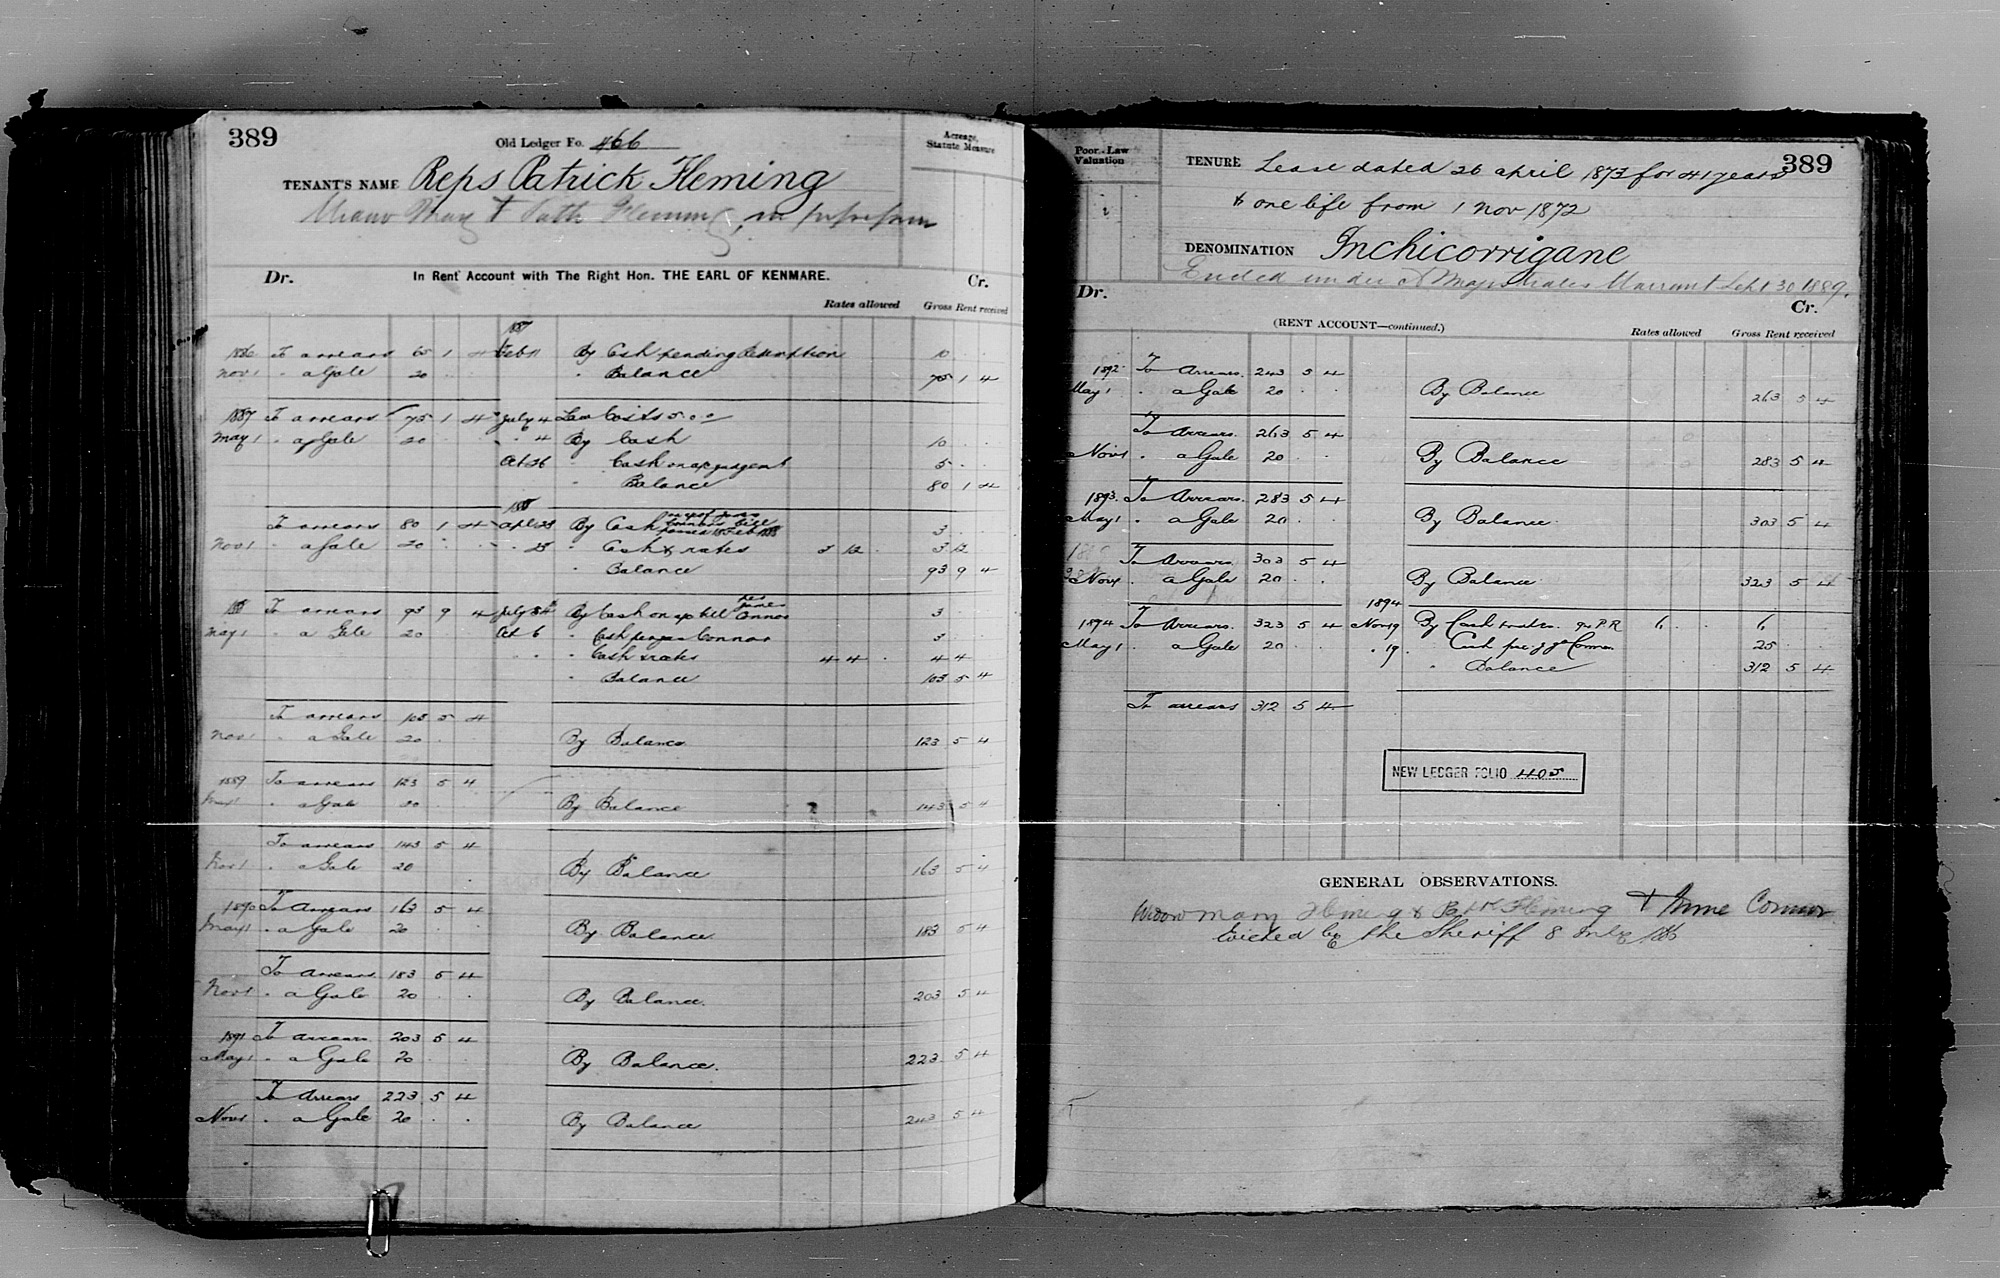 389
Old Ledger Fo. 466
Acreage, Statute Measure
TENANT'S NAME Reps Patrick Fleming
Mary & Patk Fleming, in
Dr. In Rent Account with The Right Hon. THE EARL OF KENMARE. Cr.
Rates allowed Gross Rent received
1887
1886 To arrears 65 1 4 Feb 11 By Cash pending Redemption 10
Nov 1 " a Gale 20 " Balance 75 1 4
1887 To arrears 75 1 4 July 4 Law Costs 5.0.0
May 1 " a Gale 20 " 4 By Cash 10
Oct 26 " Cash on a/c 5
" Balance 80 1 4
1888
To arrears 80 1 4 Apl 23 By Cash 3
Nov 1 " a Gale 20 " 23 " Cash & rates 3 12 3 12
" Balance 93 9 4
1888 To arrears 93 9 4 July By Cash on a/c bill James Connor 3
May 1 " a Gale 20 Oct 6 " Cash per Jas Connor 3
" " Cash & rates 4 4 4 4
" Balance 103 5 4
To arrears 103 5 4
Nov 1 " a Gale 20 By Balance 123 5 4
1889 To arrears 123 5 4
May 1 " a Gale 20 By Balance 143 5 4
To arrears 143 5 4
Nov 1 " a Gale 20 By Balance 163 5 4
1890 To Arrears 163 5 4
May 1 " a Gale 20 By Balance 183 5 4
To arrears 183 5 4
Nov 1 " a Gale 20 By Balance. 203 5 4
1891 To arrears 203 5 4
May 1 " a Gale 20 By Balance. 223 5 4
To Arrears 223 5 4
Nov 1 " a Gale 20 By Balance 243 5 4
Poor-Law Valuation
TENURE Lease dated 26 april 1873 for 41 years 389
& one life from 1 Nov 1872
DENOMINATION Inchicorrigane
Ended under a Magistrates Warrant Sept 30 1889.
Dr. Cr.
(RENT ACCOUNT—continued.) Rates allowed Gross Rent received
1892 To Arrears. 243 5 4
May 1 " a Gale 20 By Balance 263 5 4
To Arrears. 263 5 4
Nov 1 " a Gale 20 By Balance 283 5 4
1893. To Arrears. 283 5 4
May 1 " a Gale 20 By Balance 303 5 4
To Arrears 303 5 4
Nov 1 " a Gale 20 By Balance 323 5 4
1894
1894 To Arrears. 323 5 4 Nov 19 By Cash P.R 6 6
May 1 " a Gale 20 " 19 " Cash Connor 25
" Balance 312 5 4
To arrears 312 5 4
NEW LEDGER FOLIO 405
GENERAL OBSERVATIONS.
Widow Mary Fleming & Patk Fleming & Anne Connor
Evicted by the Sheriff 8 July 1886